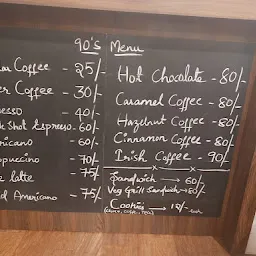 90's Menu
Coffee - 25/-
Coffee - 30/-
- 40/-
Shot Espresso - 60/-
- 60/-
- 70/-
latte - 75/-
Americano - 75/-
Hot Chocalate - 80/-
Caramel Coffee - 80/-
Hazelnut Coffee - 80/-
Cinnamon Coffee - 80/-
Irish Coffee - 90/-
Sandwich → 60/-
Veg Grill Sandwich → 80/-
Cookies → 15/- each